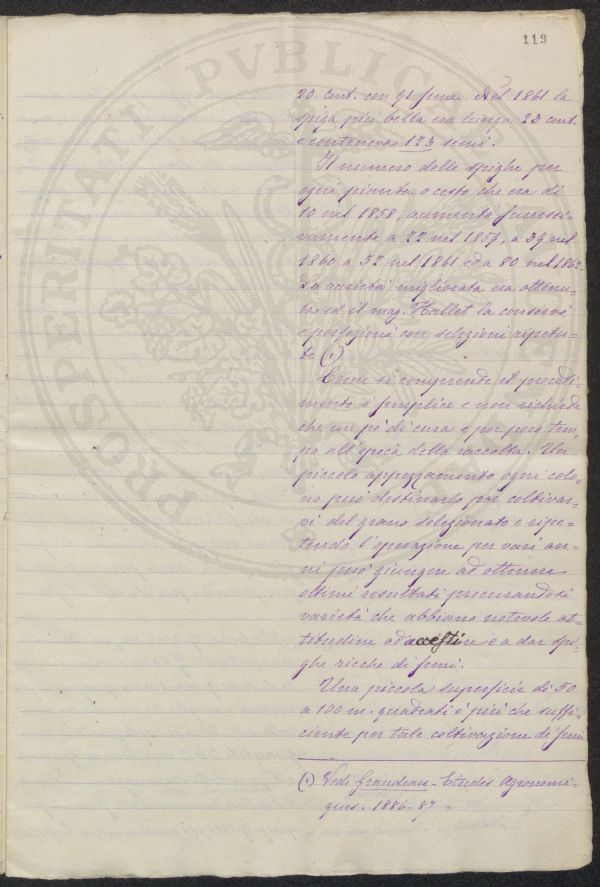 119
20. Cent. con 91 seme. Nel 1861 la
spiga più bella era lunga 23 cent.
e conteneva 123 semi.
Il numero delle spighe per
ogni pianta o cesto che era di
10 nel 1858, aumentò successi-
vamente a 22 nel 1859, a 39 nel
1860 a 52 nel 1861 ed a 80 nel 1862.
La varietà migliorata era ottenu-
ta ed il mag. Hallet la conservò
e perfezionò con selezioni ripetu-
te (1)
Come si comprende il procedi-
mento è semplice e non richiede
che un pò di cura e per poco tem-
po all'epoca della raccolta. Un
piccolo appezzamento ogni colo-
no può destinarlo per coltivar-
vi del grano selezionato e ripe-
tendo l'operazione per vari an-
ni può giungere ad ottenere
ottimi resultati procurandosi
varietà che abbiano notevole at-
titudine ad accestire e a dar spi-
ghe ricche di semi.
Una piccola superficie di 50
a 100 m. quadrati è più che suffi-
ciente per tale coltivazione di semi
(1) Vedi Grandeau - Etudes Agronomi-
ques. 1886-87 -
PROSPERITATI PVBLICAE